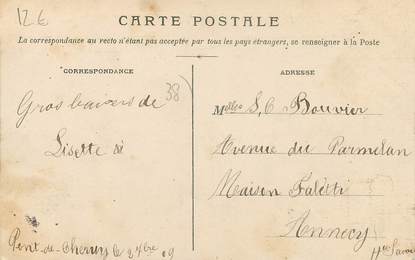 12€
CARTE POSTALE
La correspondance au recto n'étant pas acceptée par tous les pays étrangers, se renseigner à la Poste
CORRESPONDANCE
Gros baisers de
Lisette
Pont-de-Cheruy le 2 7bre 09
38)
ADRESSE
Melles S, C Bouvier
Avenue du Parmelan
Maison Faletti
Annecy
Hte Savoie